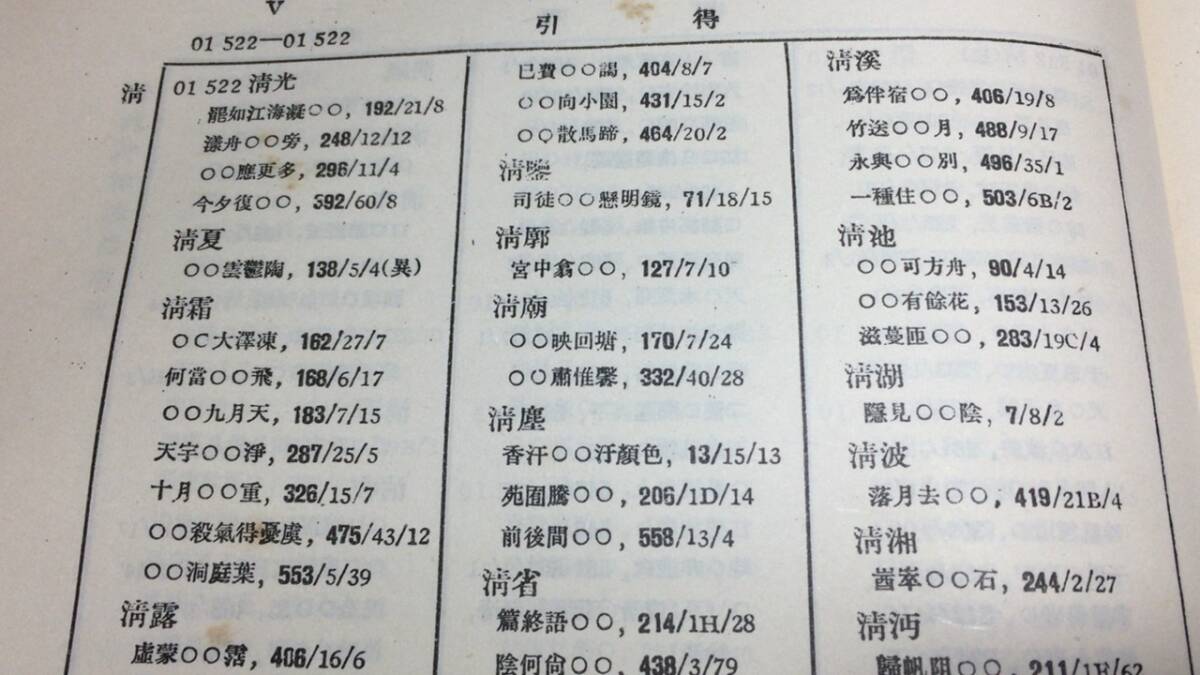 V
引得
01 522—01 522
清
01 522 清光
罷如江海凝○○, 192/21/8
漾舟○○旁, 248/12/12
○○應更多, 296/11/4
今夕復○○, 392/60/8
清夏
○○雲鬱陶, 138/5/4(異)
清霜
○○大澤凍, 162/27/7
何當○○飛, 168/6/17
○○九月天, 183/7/15
天宇○○淨, 287/25/5
十月○○重, 326/15/7
○○殺氣得憂虞, 475/43/12
○○洞庭葉, 553/5/39
清露
虛蒙○○霑, 406/16/6
已費○○謁, 404/8/7
○○向小園, 431/15/2
○○散馬蹄, 464/20/2
清鑒
司徒○○懸明鏡, 71/18/15
清廓
宮中翕○○, 127/7/10
清廟
○○映回塘, 170/7/24
○○肅惟馨, 332/40/28
清塵
香汗○○汙顏色, 13/15/13
苑囿騰○○, 206/1D/14
前後間○○, 558/13/4
清省
篇終語○○, 214/1H/28
陰何尙○○, 438/3/79
清溪
爲伴宿○○, 406/19/8
竹送○○月, 488/9/17
永與○○別, 496/35/1
一種住○○, 503/6B/2
清池
○○可方舟, 90/4/14
○○有餘花, 153/13/26
滋蔓匝○○, 283/19C/4
清湖
隱見○○陰, 7/8/2
清波
落月去○○, 419/21B/4
清湘
崷崒○○石, 244/2/27
清沔
歸帆阻○○, 211/1F/62